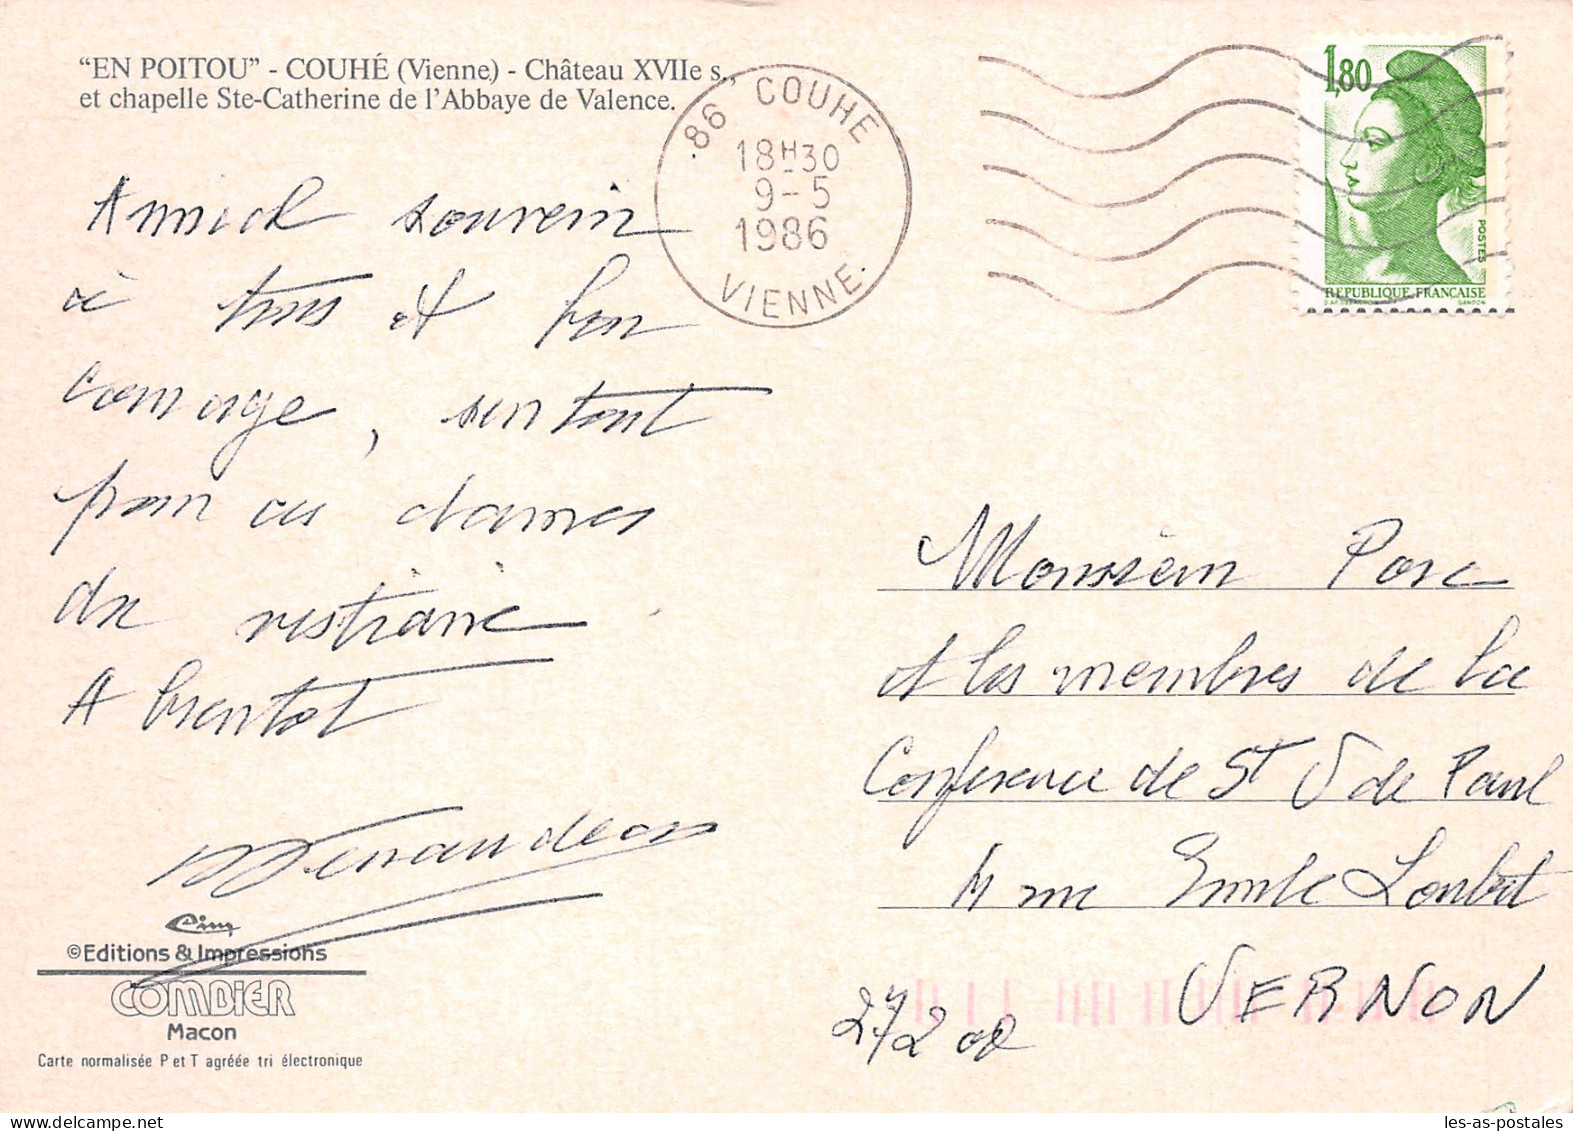 "EN POITOU" - COUHÉ (Vienne) - Château XVIIe s.,
et chapelle Ste-Catherine de l'Abbaye de Valence.
86 COUHE
18H30
9-5
1986
VIENNE
1,80
POSTES
REPUBLIQUE FRANÇAISE
GANDON
Amical souvenir
à tous et bon
courage, surtout
pour ces dames
du vestiaire
A bientot
Monsieur Porc
et les membres de la
Conference de St V de Paul
4 rue Emile Loubet
27200 VERNON
Cim
©Editions & Impressions
COMBIER
Macon
Carte normalisée P et T agréée tri électronique
les-as-postales